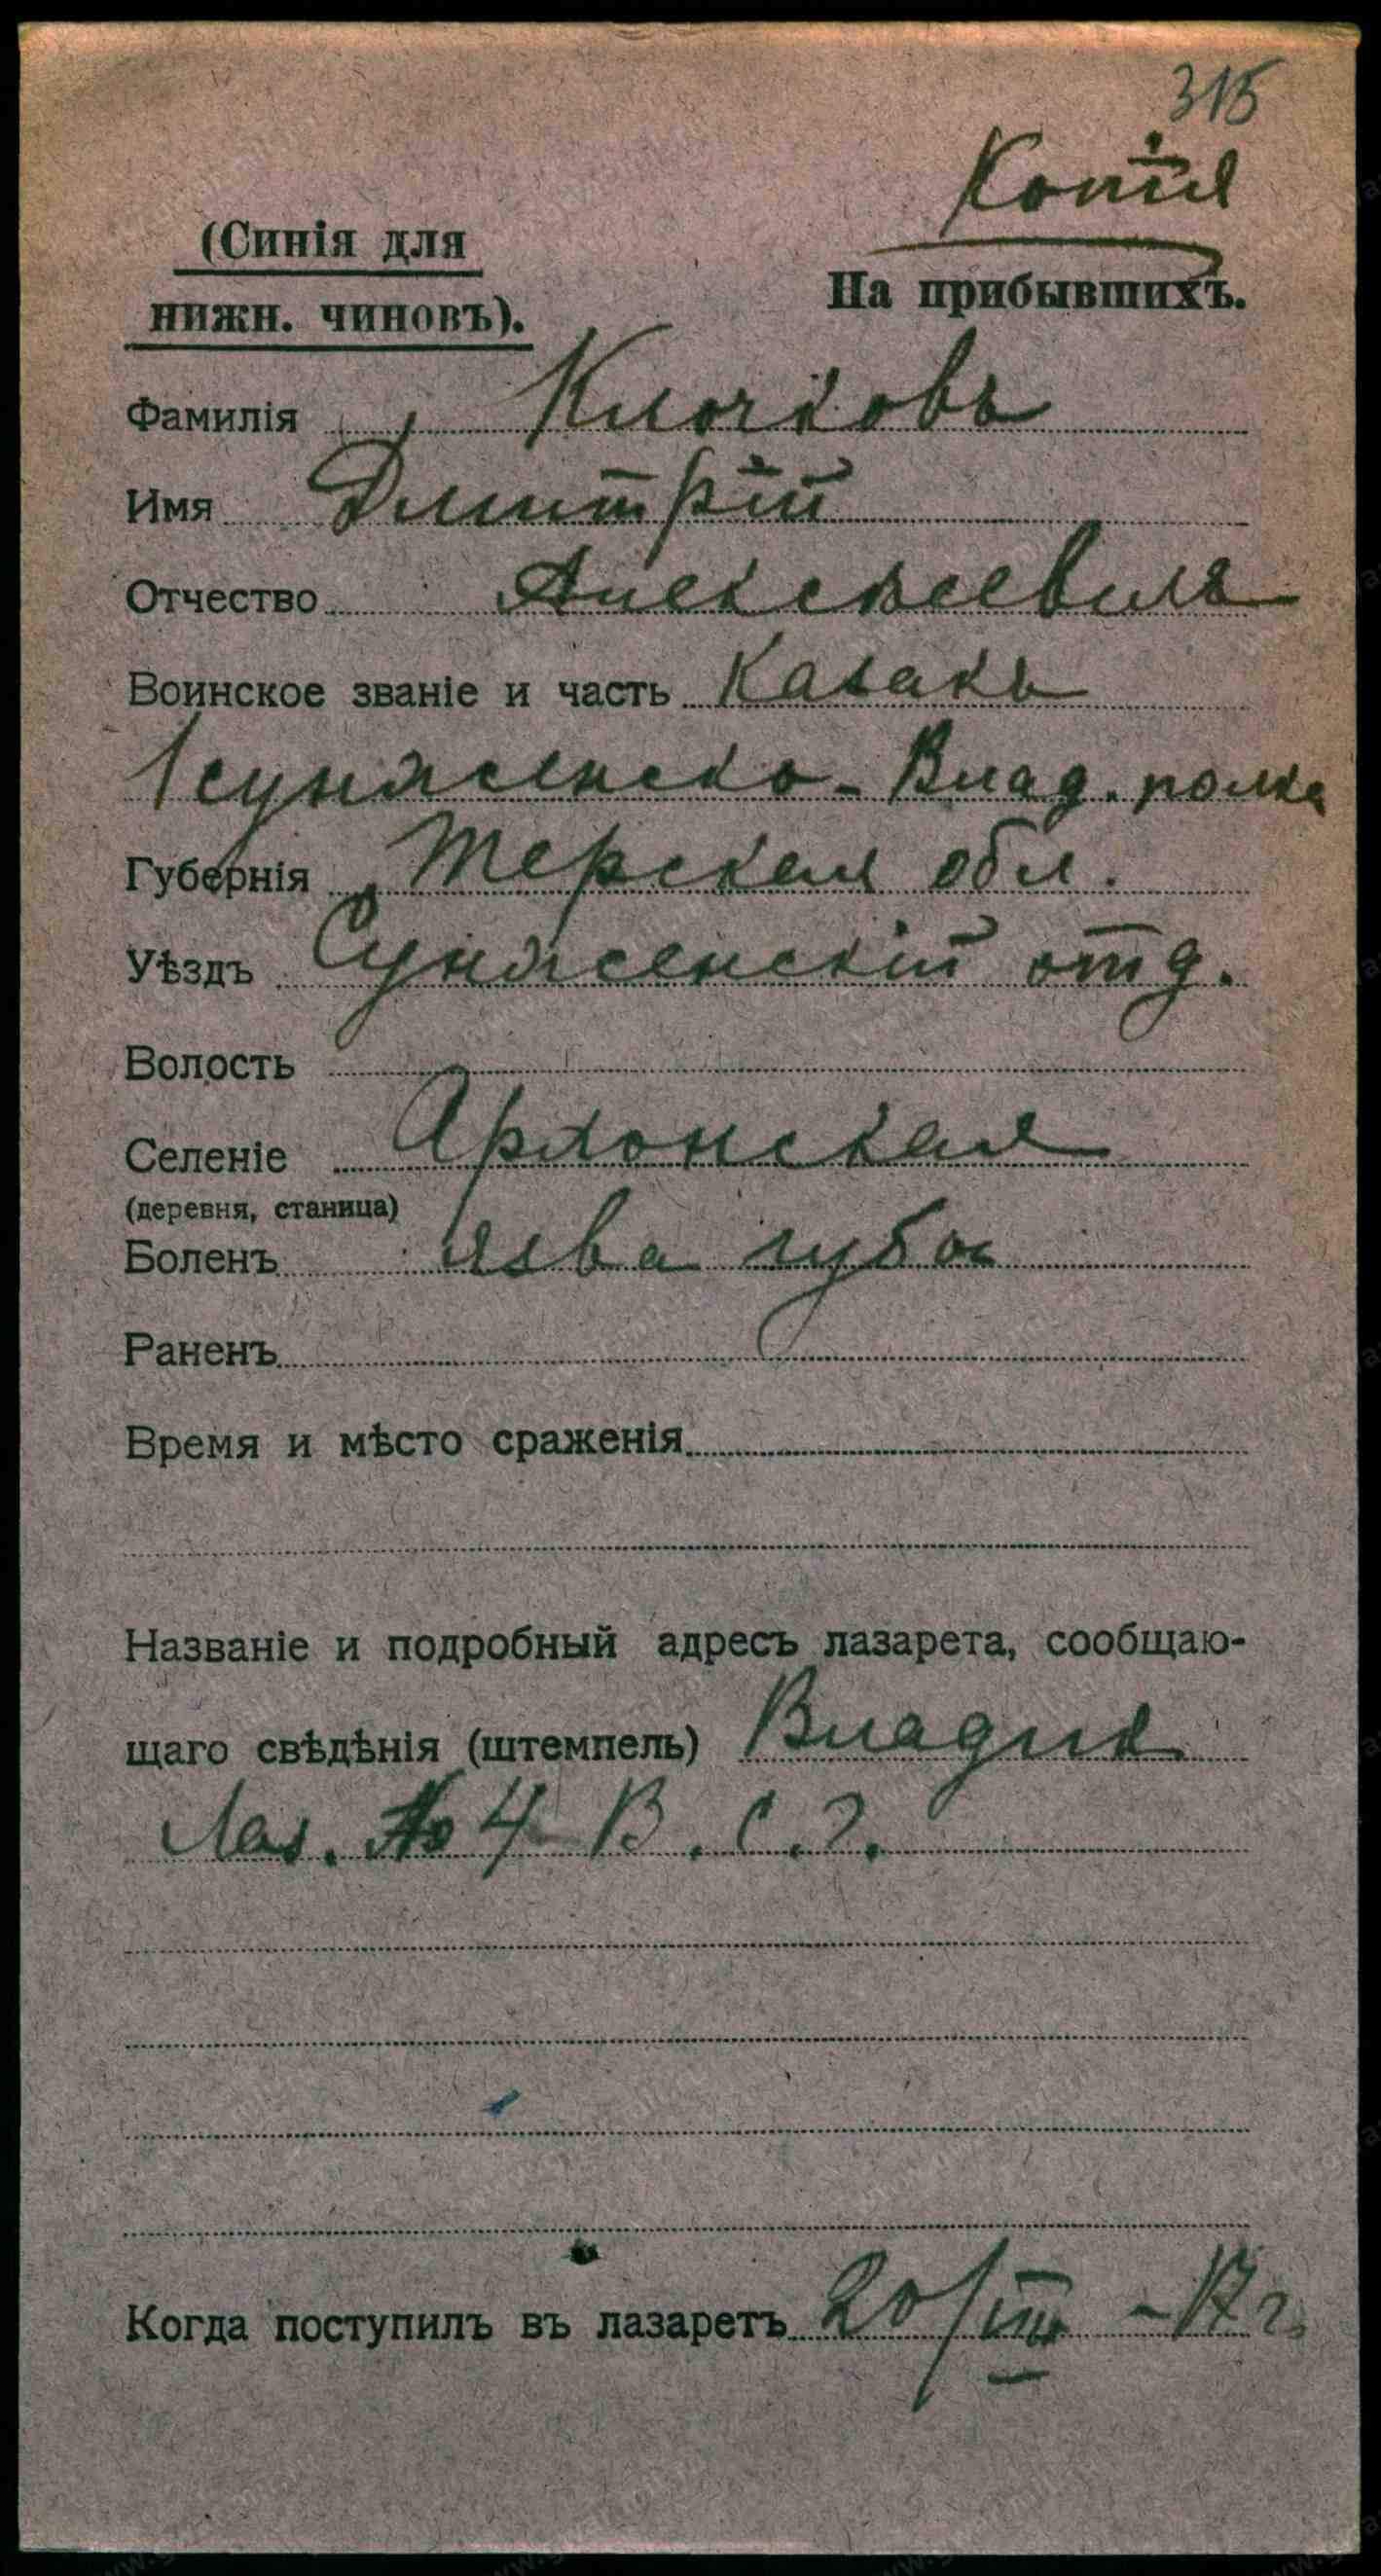 315
Копія
(Синія для
нижн. чиновъ).
На прибывшихъ.
Фамилія Клочковъ
Имя Дмитрій
Отчество Алексѣевичъ
Воинское званіе и часть Казакъ
1 сунженско-Влад. полка
Губернія Терская обл.
Уѣздъ Сунженскій отд.
Волость
Селеніе Архонская
(деревня, станица)
Боленъ язва губы
Раненъ
Время и мѣсто сраженія
Названіе и подробный адресъ лазарета, сообщаю-
щаго свѣдѣнія (штемпель) Владик
Лаз. № 4 В. С. Г.
Когда поступилъ въ лазаретъ 20/III - 17 г.